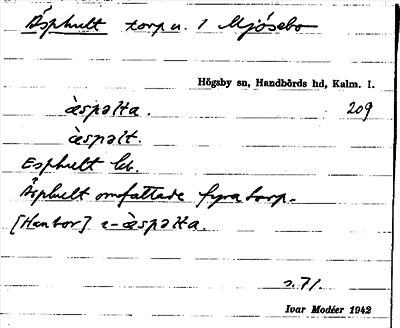 Äsphult torp u. 1 Mjösebo
Högsby sn, Handbörds hd, Kalm. l.
àspəlta. 209
àspəlt.
Esphult kb.
Äsphult omfattade fyra torp.
[Han bor] i-àspəlta.
s. 71.
Ivar Modéer 1942